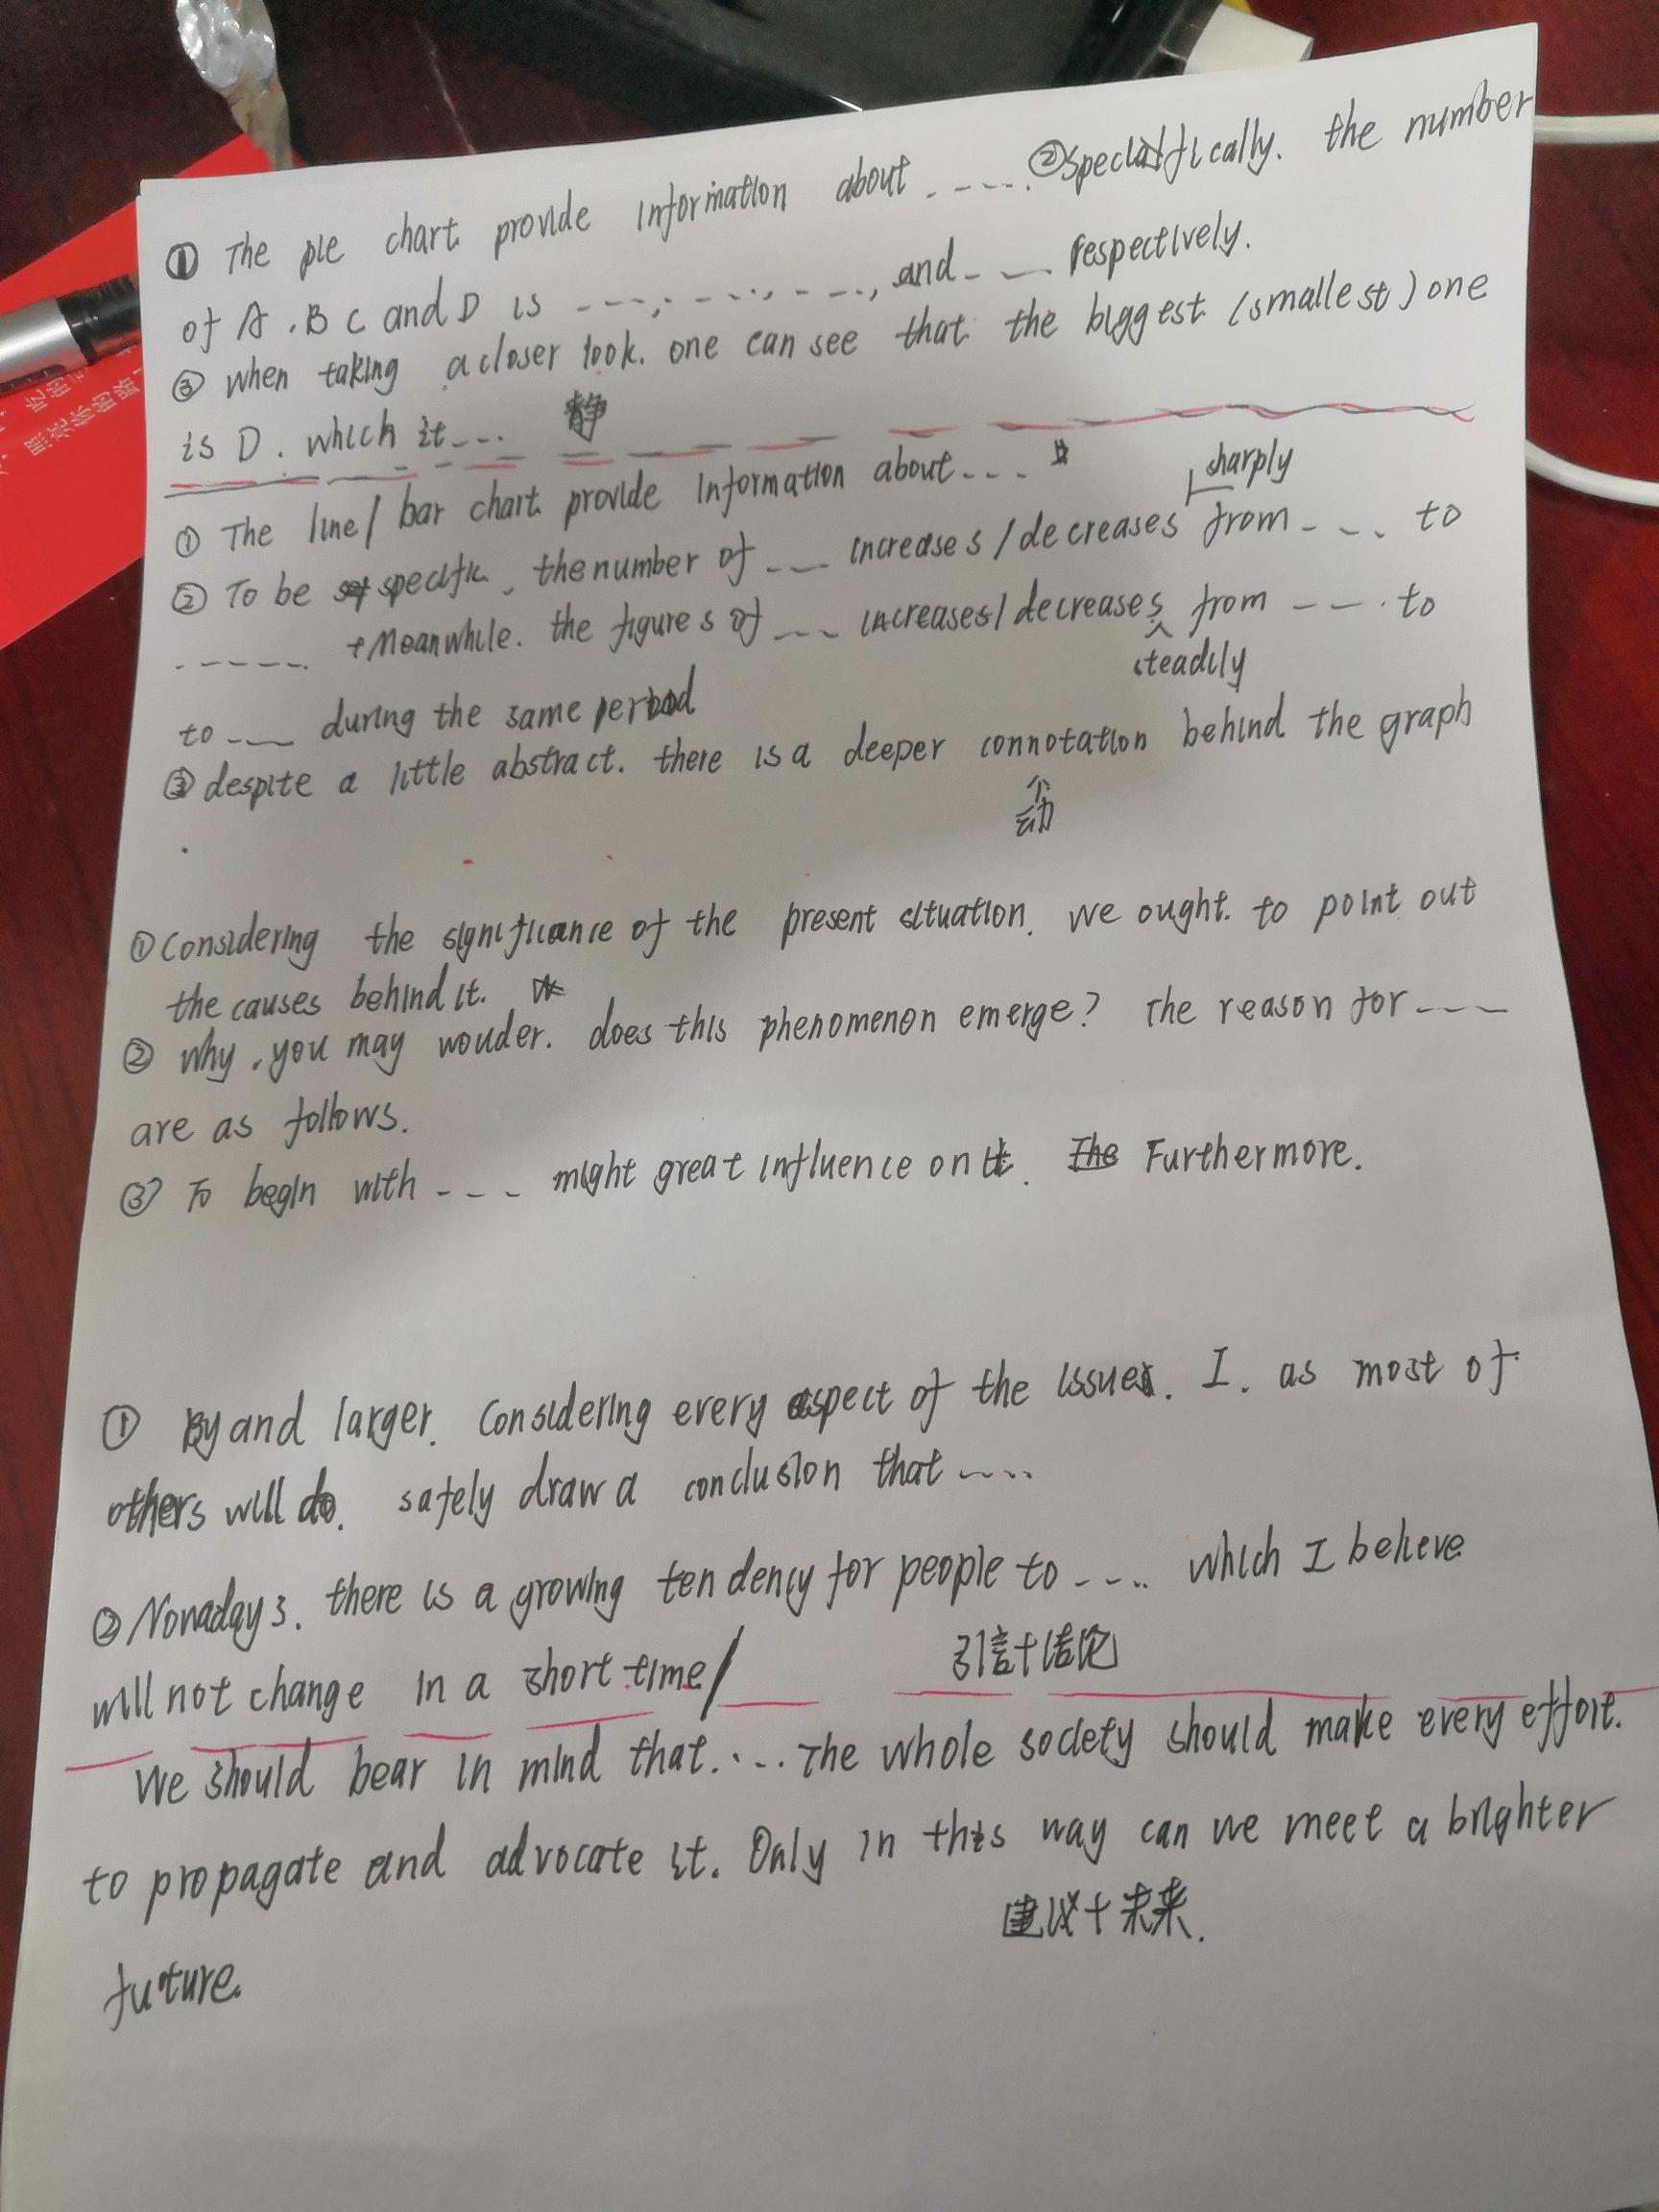 ① The pie chart provide information about ..... ② specifically. the number
of A, B C and D is ...., ....., ....., and .... respectively.
③ when taking a closer look. one can see that the biggest (smallest) one
is D. which it... 静
① The line/ bar chart provide information about...
sharply
② To be specific, the number of ... increases/decreases from .... to
..... +Meanwhile. the figures of ... increases/decreases from .... to
steadily
to ... during the same period
③ despite a little abstract. there is a deeper connotation behind the graph
个
动
① Considering the significance of the present situation. we ought to point out
the causes behind it.
② Why, you may wouder. does this phenomenon emerge? The reason for ....
are as follows.
③ To begin with .... might great influence on it. The Furthermore.
① By and larger. Considering every aspect of the issues. I. as most of
others will do. safely draw a conclusion that ....
② Nowadays. there is a growing tendency for people to .... which I believe
will not change in a short time/
引言+结论
We should bear in mind that.... The whole society should make every effort.
to propagate and advocate it. Only in this way can we meet a brighter
建议+未来.
future.